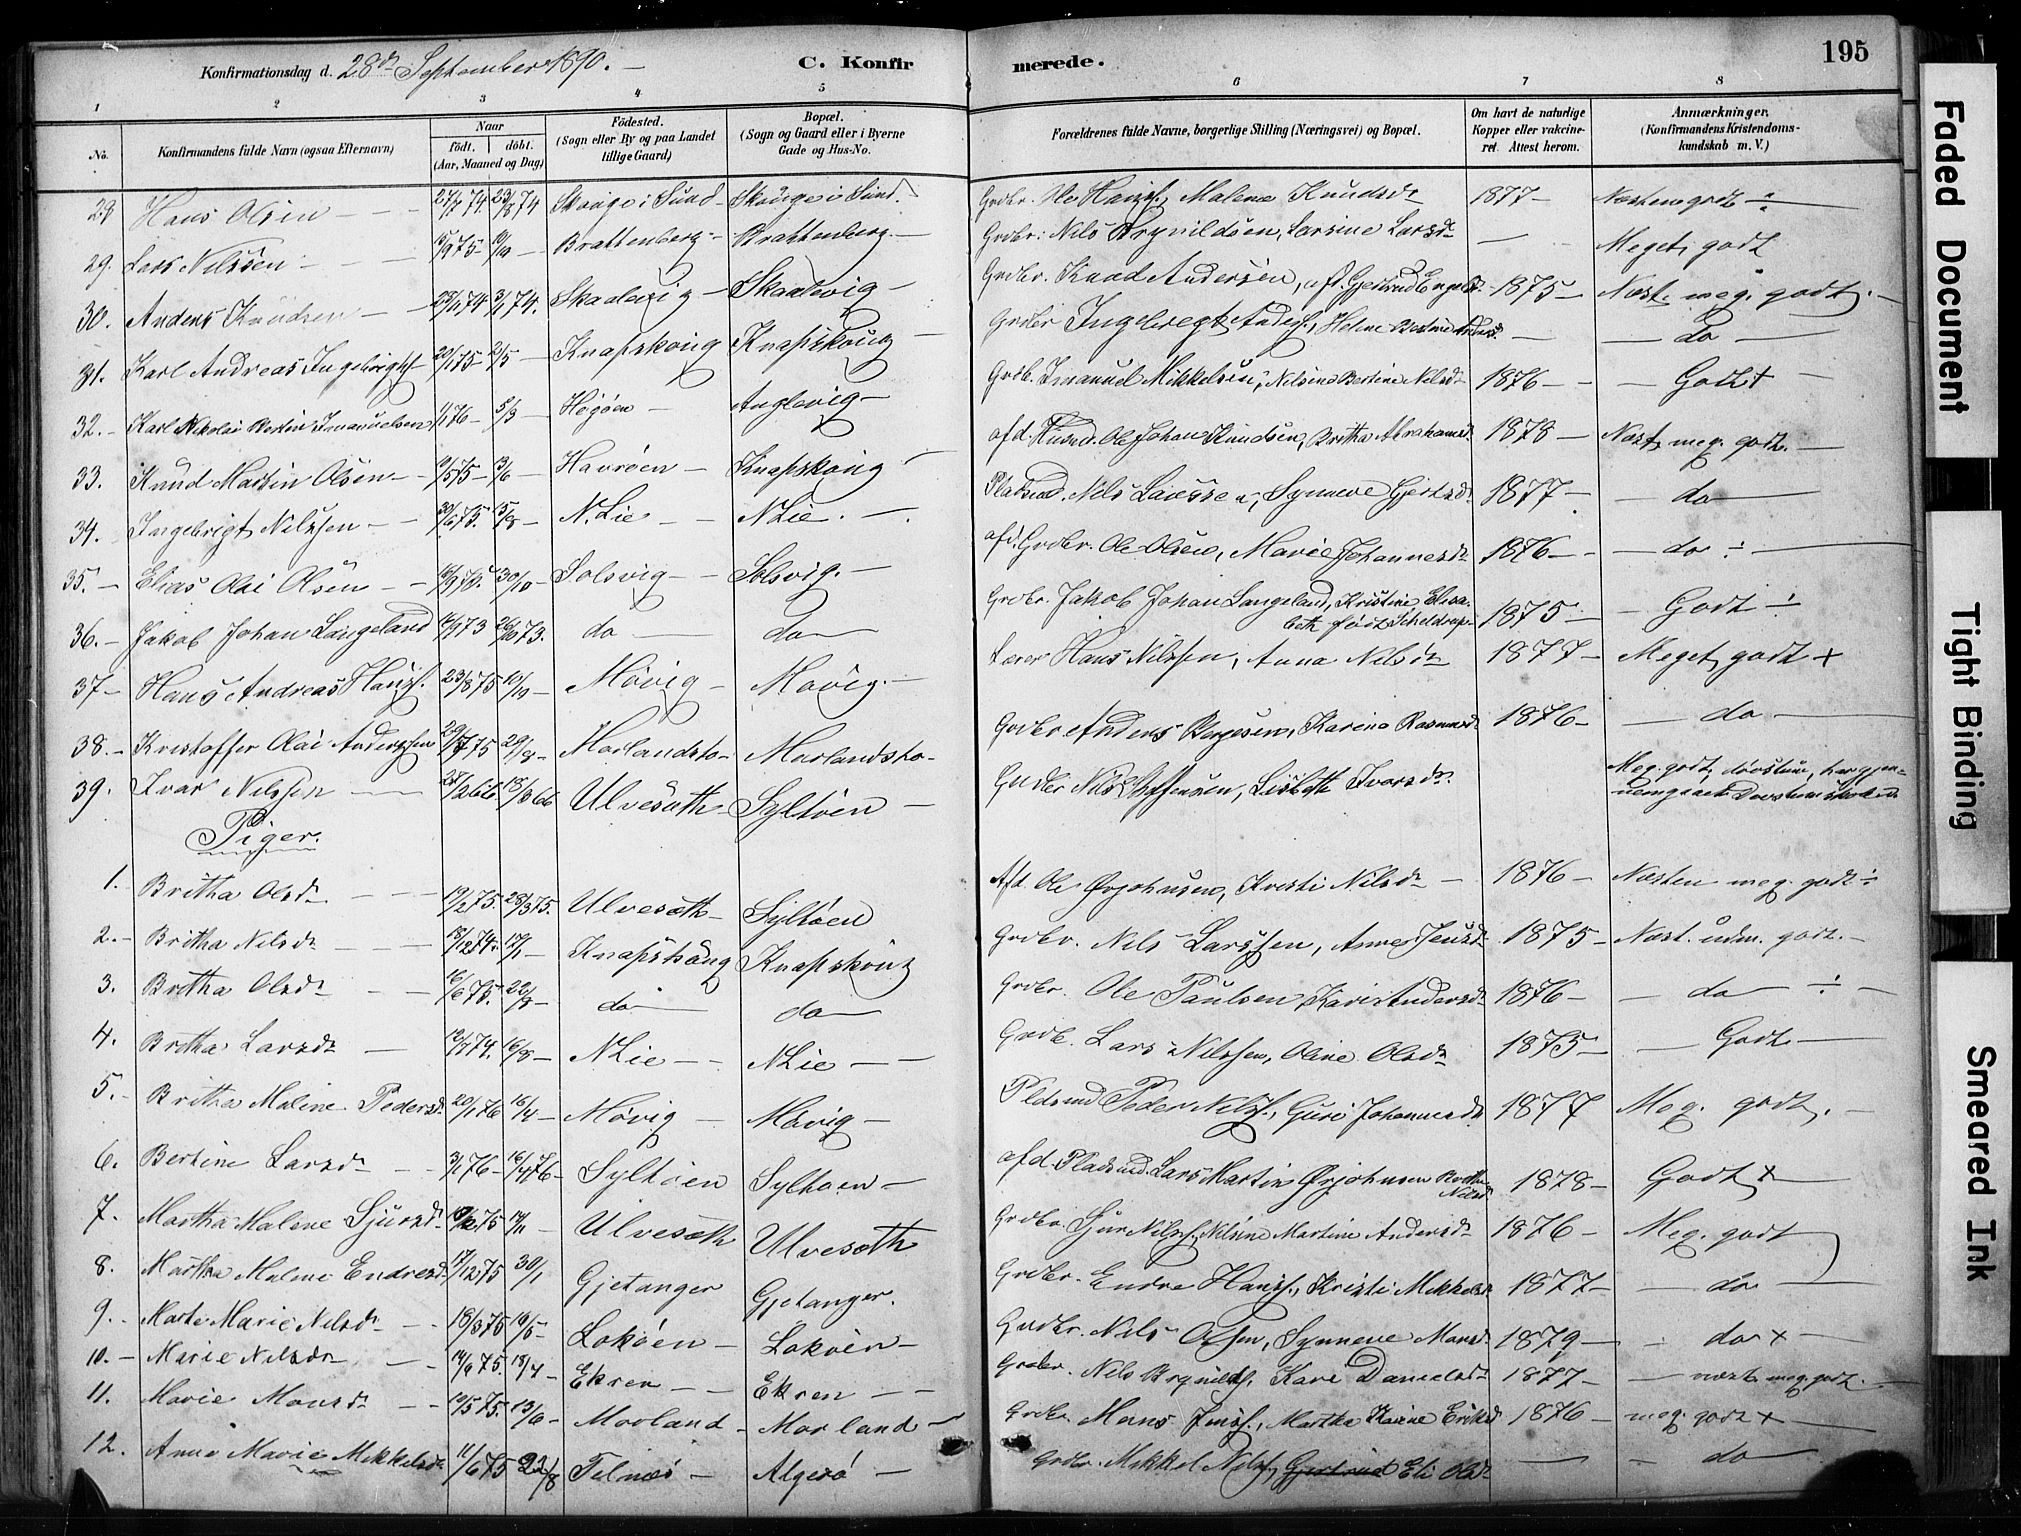 Konfirmationsdag d. 28de September 1890. —
C. Konfirmerede.
195
1 2 3 4 5 6 7 8
No. Konfirmandens fulde Navn (ogsaa Efternavn) Naar født. døbt. (Aar, Maaned og Dag) Fødested. (Sogn eller By og paa Landet tillige Gaard) Bopæl. (Sogn og Gaard eller i Byerne Gade og Hus-No. Forældrenes fulde Navne, borgerlige Stilling (Næringsvei) og Bopæl. Om havt de naturlige Kopper eller vakcineret. Attest herom. Anmærkninger. (Konfirmandens Kristendomskundskab m. V.)
Hans Olsen Skouge i Sund Skouge i Sund. Grdbr. Ole Hansf., Malena Knudsdr 1877 — Næsten godt
29. Lars Nilssen Brattenberg — Brattenberg — Grdbr. Nils Brynildsen, Larsine Larsdr — Meget godt
30. Anders Knudsen Skaalevig — Skaalevig — Grdbr. Knud Andersen, 1875 — Næst. meg. godt. —
31. Karl Andreas Ingebrigtsf 20/1 75 2/5 — Knapskoug Knapskoug Grdbr — do —
32. — Karl Nikolai Bertin Imanuelsen 5/3 Høgøen — Anglevig — Grdb. Imanuel Mikkelsen, Nilsine Bertine Nilsdr 1876 — Godt +
33. Knud Martin Olsen — 13/6 Havrøen — Knapskoug afd. Husmd. Ole Johan Knudsen, Britha Abrahamsdr 1878 — Næst. meg. godt. —
34. Ingebrigt Nilssen — 30/6 75. N. Lie N Lie. — Pladsmd. Nils Larssen, Synneve Gjertsdr 1877 — do —
35. — Elias Olai Olsen — 30/10 Solsvig — Solsvig. — afd. Grdbr. Ole Olsen, Marie Johannesdr 1876 — do ÷ —
36. — Jakob Johan Langeland 26/10 73. do — do — Grdbr. Jakob Johan Langeland, Kristine Elisabeth født Scheldrup 1875 — Godt ÷
37 — Hans Andreas Hansf. 23/8 75 10/10 — Møvig — Møvig. — Lærer Hans Nilssen, Anna Nilsdr 1877 — Meget godt +
38. — Kristoffer Olai Anderssen 29/8 — Morlandsto — Morlandsto — Grdbr Anders Børgesen, Karina Rasmusdr 1876 — do —
39. Ivar Nilssen 18/3 66 Ulvesæth Syltøen — Grdbr Nils, Lisbeth Ivarsdr. Meg. godt, døvstum, har gjennemgaaet Døvstumskolen
Piger.
1. Britha Olsdr 19/2 75. 28/3 75. Ulvesæth — Syltøen Afd. Ole Ørjohnsen, Kristi Nilsdr — 1876 — Næsten meg. godt ÷
2. — Britha Nilsdr 18/12 74. 17/1 — Knapskoug Knapskoug Grdbr. Nils Larssen, Anne Jensdr 1875 — Næst. udm. godt. —
3. Britha Olsdr 16/6 75. 22/8 do do Grdbr. Ole Paulsen, Kari Andersdr 1876 — do ÷ —
4. Britha Larsdr — 12/7 74. 16/8 — N Lie — N Lie — Grdb. Lars Nilssen, Oline Olsdr 1875 — Godt —
5. Britha Maline Pedersdr 20/1 76 16/4 — Møvig — Møvig — Pladsmd Peder Nilsf., Guri Johannesdr 1877 Meg. godt. —
6. Bertine Larsdr 3/1 76 — 16/4 76 — Syltøen Syltøen — afd. Pladsmd. Lars Martin Ørjohnsen Britha Nilsd 1878 — Godt +
7. Martha Malene Sjursdr 14/11 Ulvesæth Ulvesæth Grdbr. Sjur Nilsf., Nilsine Martine Andersdr 1876 — Meg. godt
8. Martha Malene Endresdr 17/12 75 30/1 Gjetanger Gjetanger. Grdbr. Endre Hansf., Kristi Mikkelsdr 1877 — do —
9. Marta Marie Nilsdr 18/3 75 16/5 — Lokøen — Lokøen — Grdbr. Nils Olsen, Synneve Monsdr 1879 — do + —
10. — Marie Nilsdr 18/7 — Ekren — Ekren — Grdbr. Nils Brynildsf., Kari Danielsdr 1877 — næst. meg. godt. —
11. Marie Monsdr 19/5 75. 13/6 — Morland — Morland — Grdbr. Mons Jensf., Martha Karine Eriksd 1876 — meg. godt + —
12. Anna Marie Mikkelsdr 11/6 75 22/8 Telnæs — Algerø — Grdbr. Mikkel Nilsf., Gjertrud Eli Olsdr — do —
Faded Document
Tight Binding
Smeared Ink